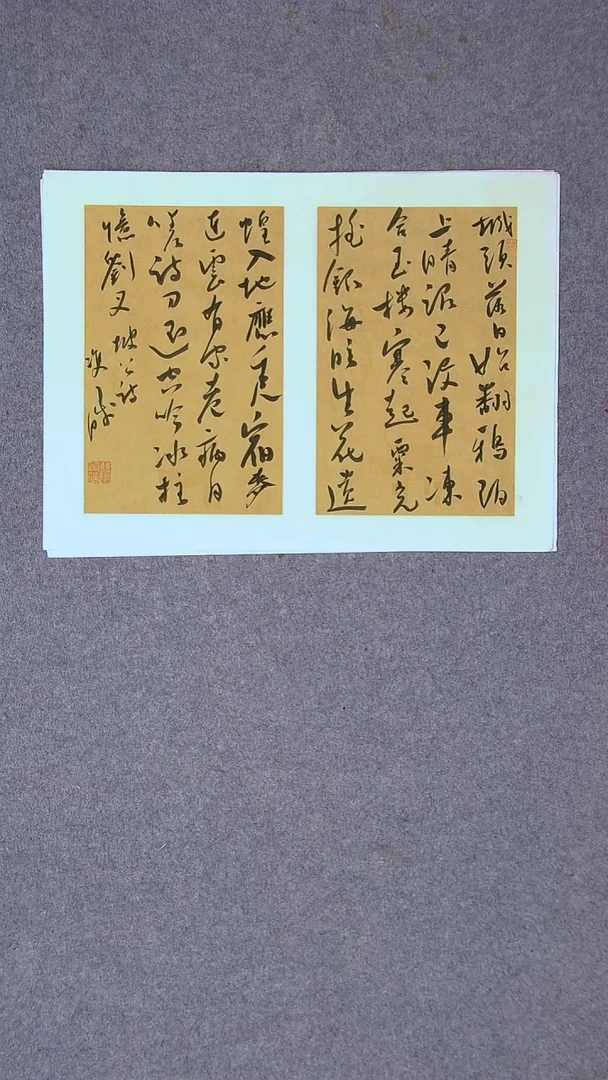 城頭落日始翻鴉陌
上晴泥已沒車凍
合玉樓寒起粟光
搖銀海眩生花遺
蝗入地應千尺宿麥
連雲有家老病自
嗟詩力退空吟冰柱
憶劉叉 坡公詩